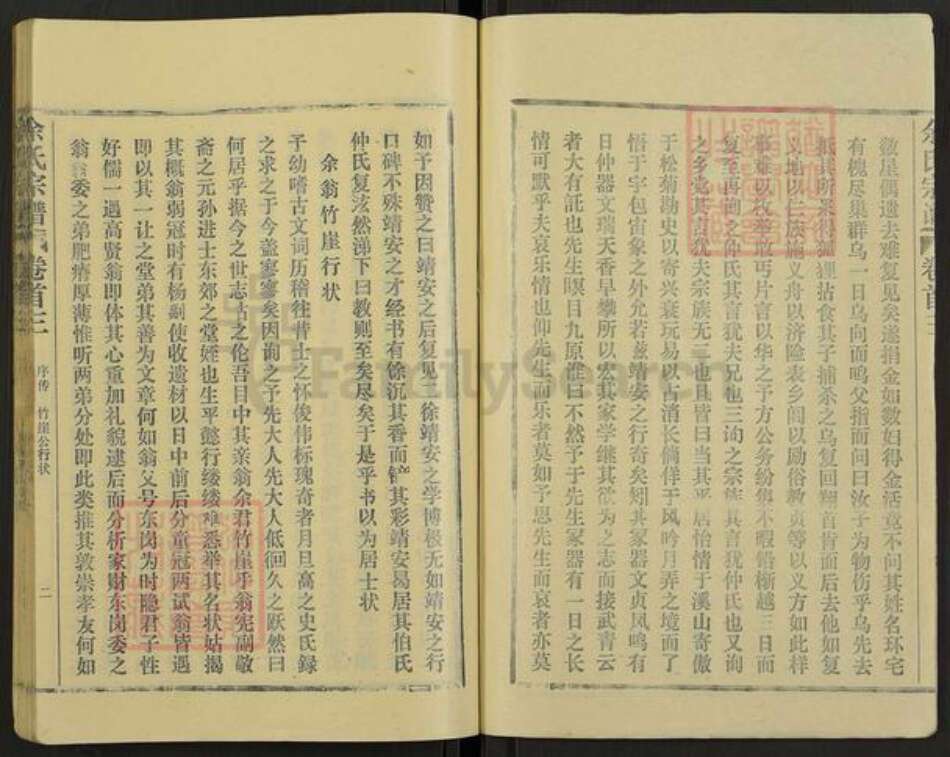 敛崖偶遗去难复见矣遂捐金如数妇得金活竟不问其姓名环宅
有槐尽巢群乌一日乌向面鸣父指而问曰汝子为物伤乎乌先去
其所果得狐狸拈食其子捕杀之乌复回翔首肯而后去他如复
义地以仁族施义舟以济险表乡闾以励俗教贞等以义方如此样
事难以枚举敢丐片言以华之予方公务纷集不暇错楮越三日而
复至再询之仲氏其言犹夫兄也三询之宗族其言犹仲氏也又询
之乡党其言犹夫宗族无二也且皆曰当其平居怡情于溪山寄傲
于松菊勘史以寄兴衰玩易以占消长倘佯于风吟月弄之境而了
悟于宇包宙象之外允若兹靖安之行奇矣矧其冢器文贞凤鸣有
日仲器文瑞天香早攀所以宏其家学继其欲为之志而接武青云
者大有託也先生暝目九原谁曰不然予于先生冢器有一日之长
情可默乎夫哀乐情也仰先生而乐者莫如予思先生而哀者亦莫
如予因赞之曰靖安之后复见二徐靖安之学博极无如靖安之行
口碑不殊靖安之才经书有馀沉其香而铲其彩靖安曷居其伯氏
仲氏复泫然涕下曰教则至矣尽矣于是乎书以为居士状
余翁竹崖行状
予幼嗜古文词历稽往昔士之怀俊伟标瑰奇者月旦高之史氏录
之求之于今盖寥寥矣因询之予先大人先大人低徊久之跃然曰
何居乎据今之世志古之伦吾目中其亲翁余君竹崖乎翁宪副敬
斋之元孙进士东郊之堂姪也生平懿行缕缕难悉举其名状姑揭
其概翁弱冠时有杨副使收遗材以日中前后分童冠两试翁皆遇
即以其一让之堂弟其善为文章何如翁父号东岗为时隐君子性
好儒一遇高贤翁即体其心重加礼貌逮后面分析家财东岗委之
翁翁委之弟肥瘠厚薄惟听两弟分处即此类推其敦崇孝友何如
余氏宗谱
卷首三
序传 竹崖公行状
二
FamilySearch